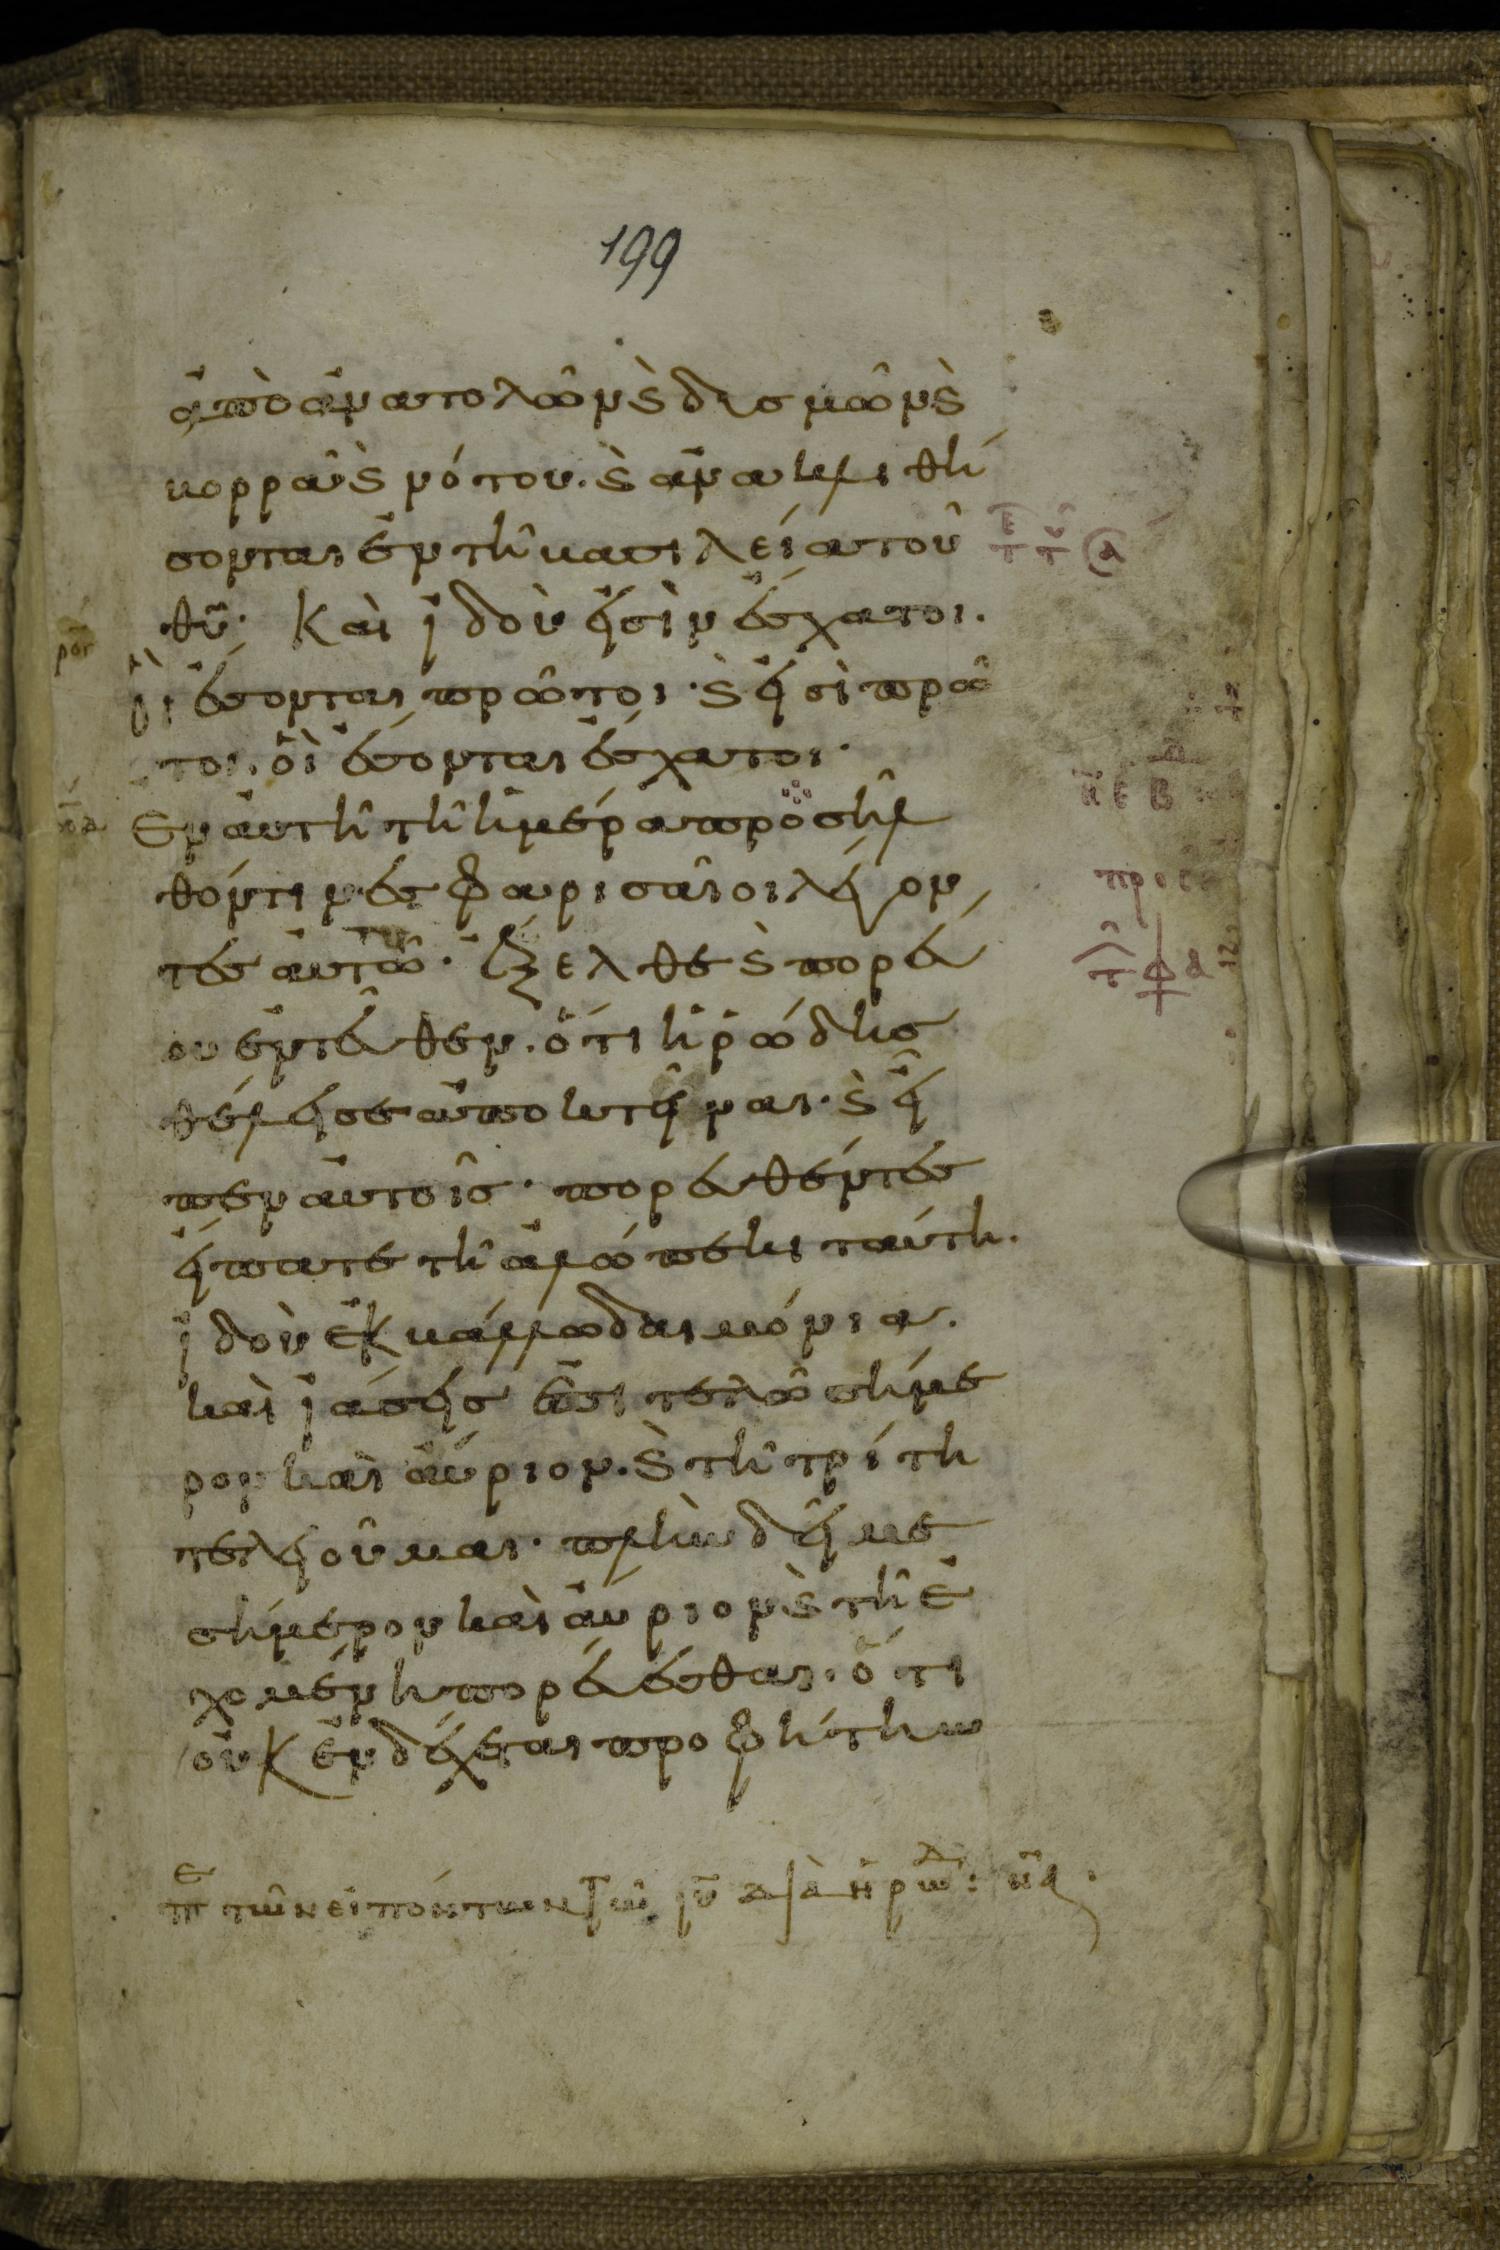 199
ἀπὸ ἀνατολῶν ϗ δυσμῶν ϗ
βορρᾶ ϗ νότου. ϗ ἀνακλιθή
σονται ἐν τῆ βασιλεία τοῦ
θυ̅· Καὶ ἰδοὺ εἰσὶν ἔσχατοι.
οἳ ἔσονται πρῶτοι· ϗ εἰσὶ πρῶ
τοι. οἳ ἔσονται ἔσχατοι·
Εν αὐτῆ τῆ ἡμέρα προσῆλ
θόν τινες φαρισαῖοι λέγον
τες αὐτῶ· ἔξελθε ϗ πορεύ
ου ἐντεῦθεν. ὅτι ἡρώδης
θέλει σε ἀποκτεῖναι· ϗ εἶ
πεν αὐτοῖς· πορευθέντες
εἴπατε τῆ ἀλώπεκι ταύτη.
ἰδοὺ ἐκβάλλω δαιμόνια.
καὶ ἰάσεις ἐπιτελῶ σήμε
ρον καὶ αὔριον. ϗ τῆ τρίτη
τελειοῦμαι· πλὴν δεῖ με
σήμερον καὶ αὔριον ϗ τῆ ἐ
χομένη πορεύεσθαι. ὅτι
οὐκ ἐνδέχεται προφήτην
τῶν εἰπόντων τῶ ιυ̅ διὰ ἡρώδ: